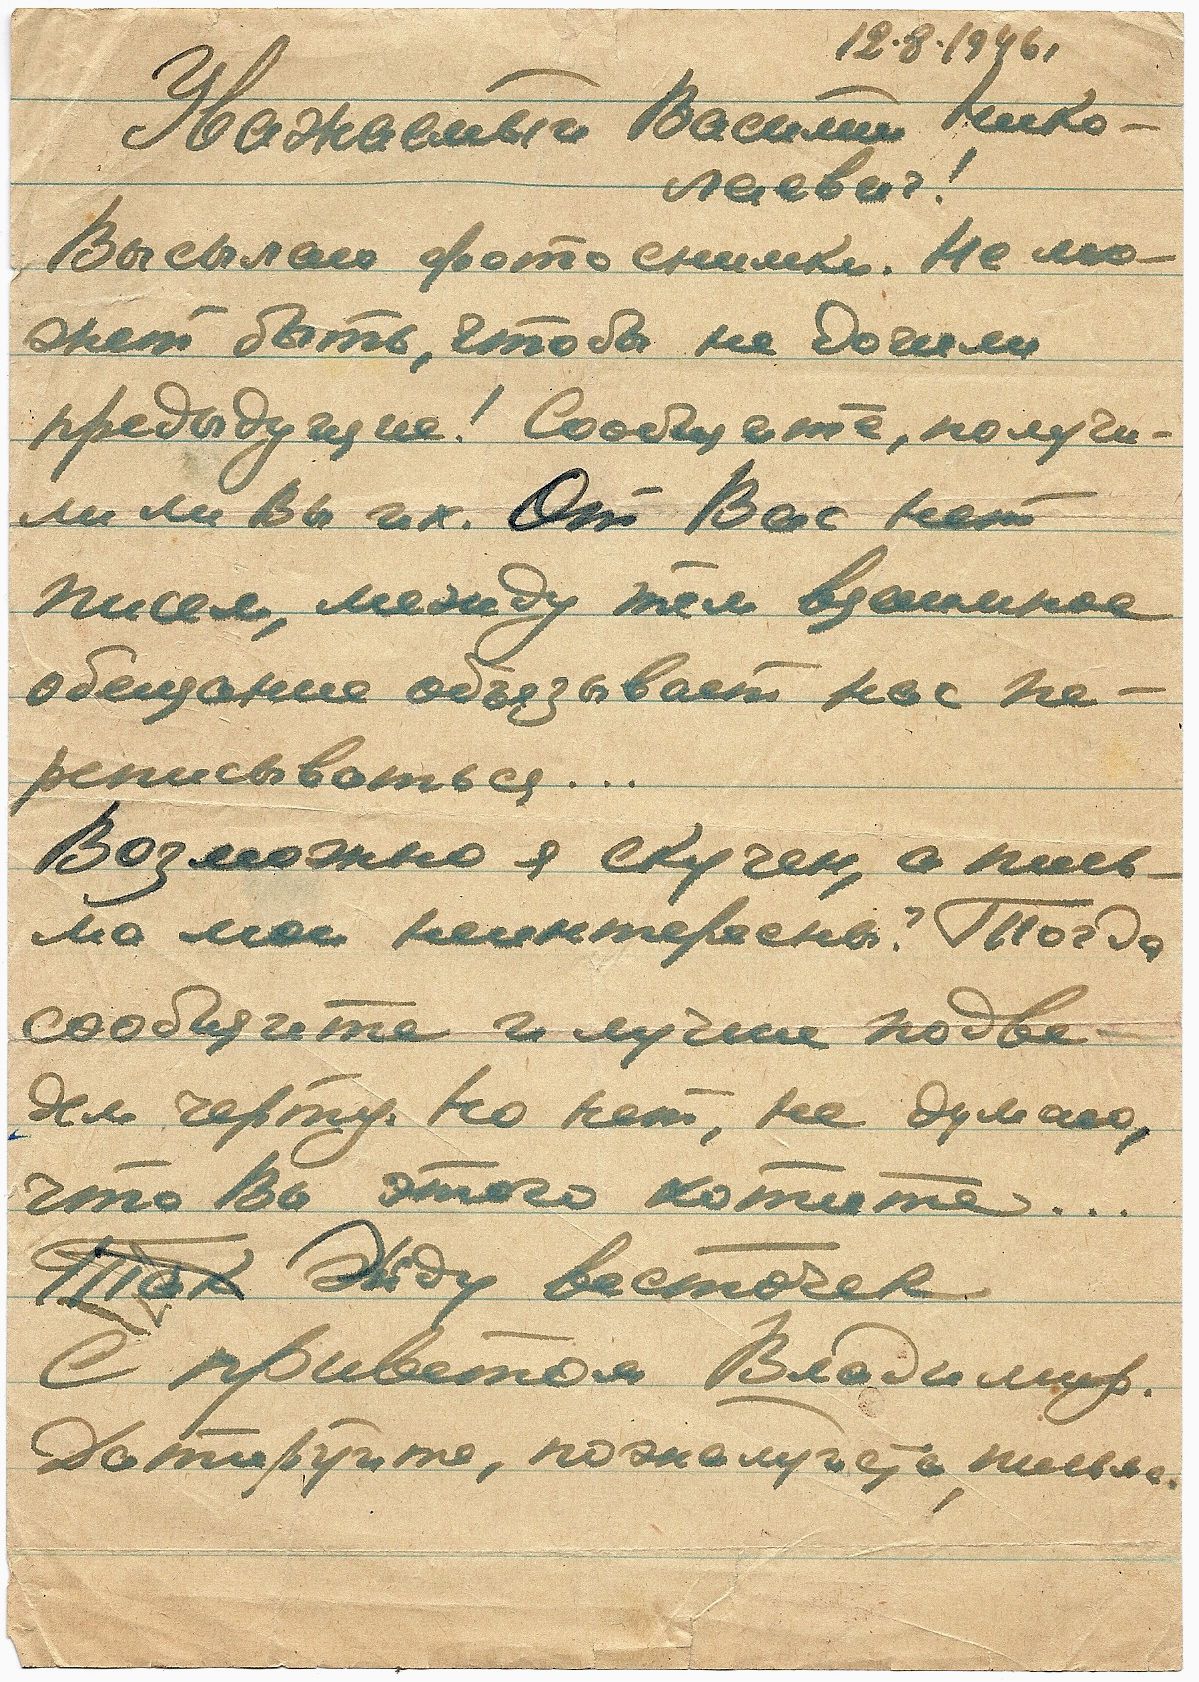 12.8.1946.
Уважаемый Василий Нико-
лаевич!
Высылаю фотоснимки. Не мо-
жет быть, чтобы не дошли
предыдущие! Сообщите, получи-
ли ли Вы их. От Вас нет
писем, между тем взаимное
обещание обязывает нас пе-
реписываться...
Возможно я скучен, а пись-
ма мои неинтересны? Тогда
сообщите и лучше подве-
дем черту. Но нет, не думаю,
что Вы этого хотите...
Так Жду весточек
С приветом Владимир.
Датируйте, пожалуйста, письма.